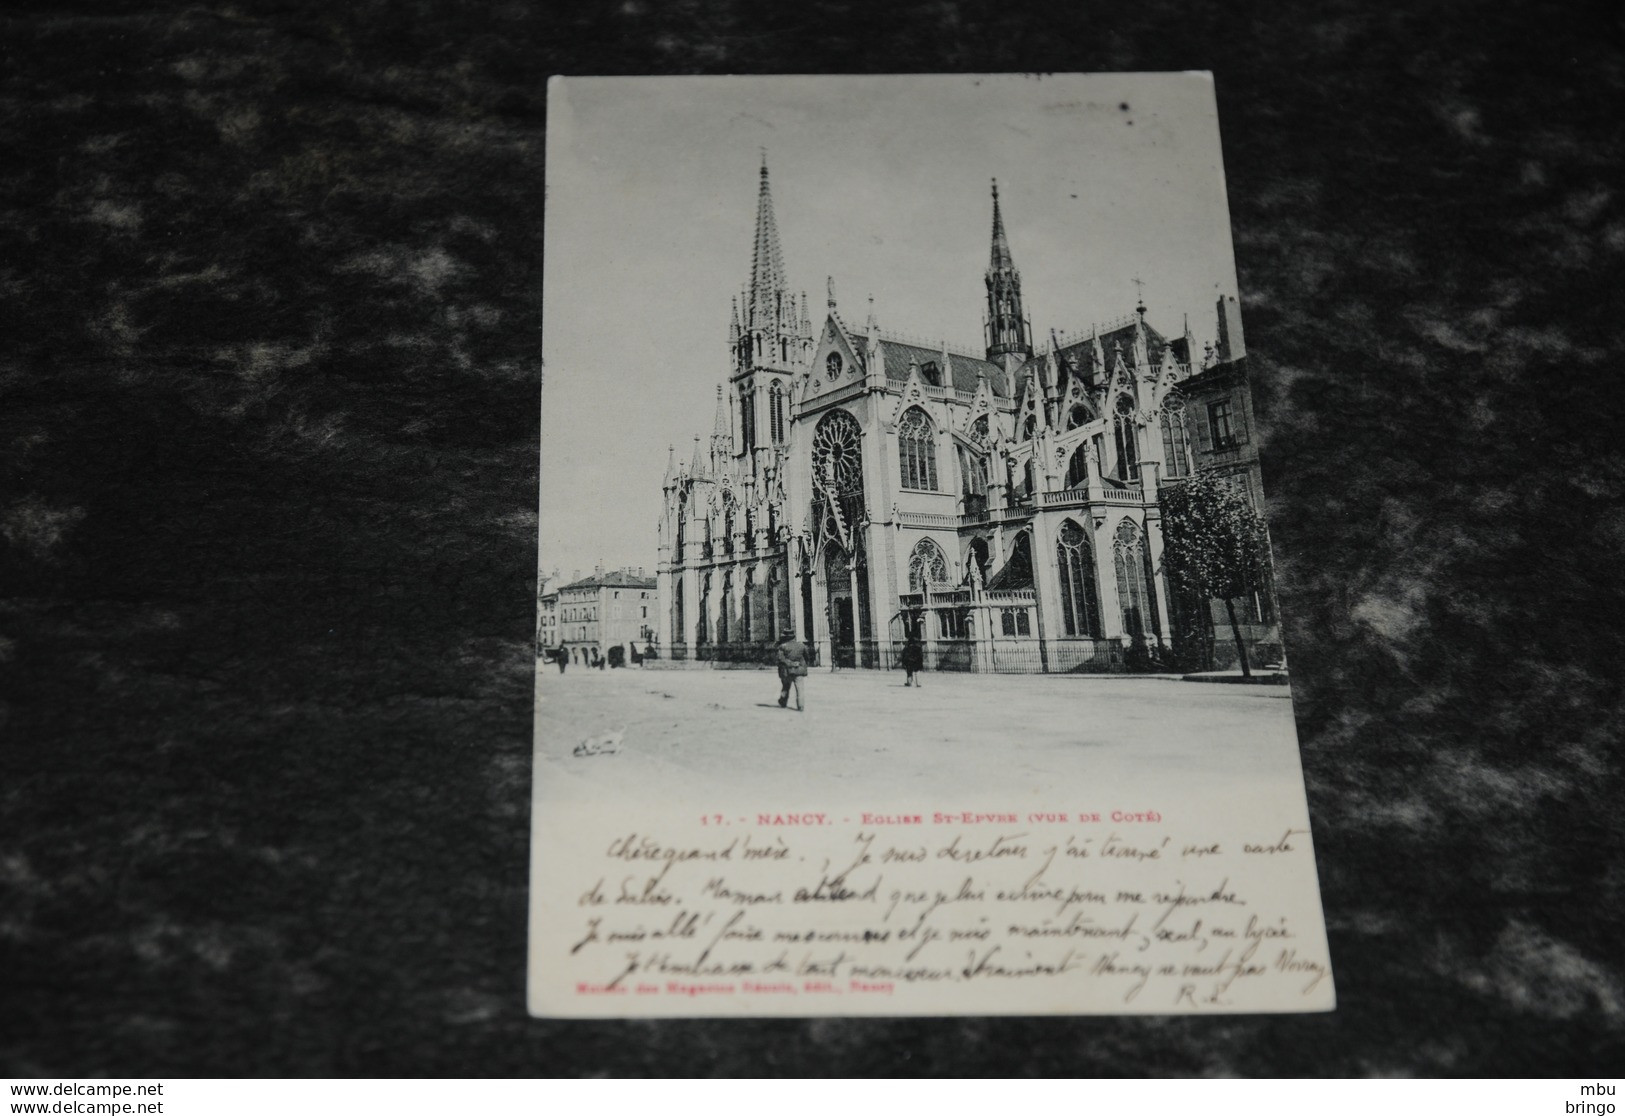 17. - NANCY. - EGLISE ST-EPVRE (VUE DE COTÉ)
Chère grand'mère. Je suis de retour j'ai trouvé une carte
de Maman attend que je lui écrive pour me répondre.
Je suis allé faire mes courses et je suis maintenant, seul, au lycée
Je t'embrasse de tout mon cœur. Vraiment Nancy ne vaut pas
R.
Maison des Magasins Réunis, édit., Nancy
www.delcampe.net
www.delcampe.net
mbu
bringo